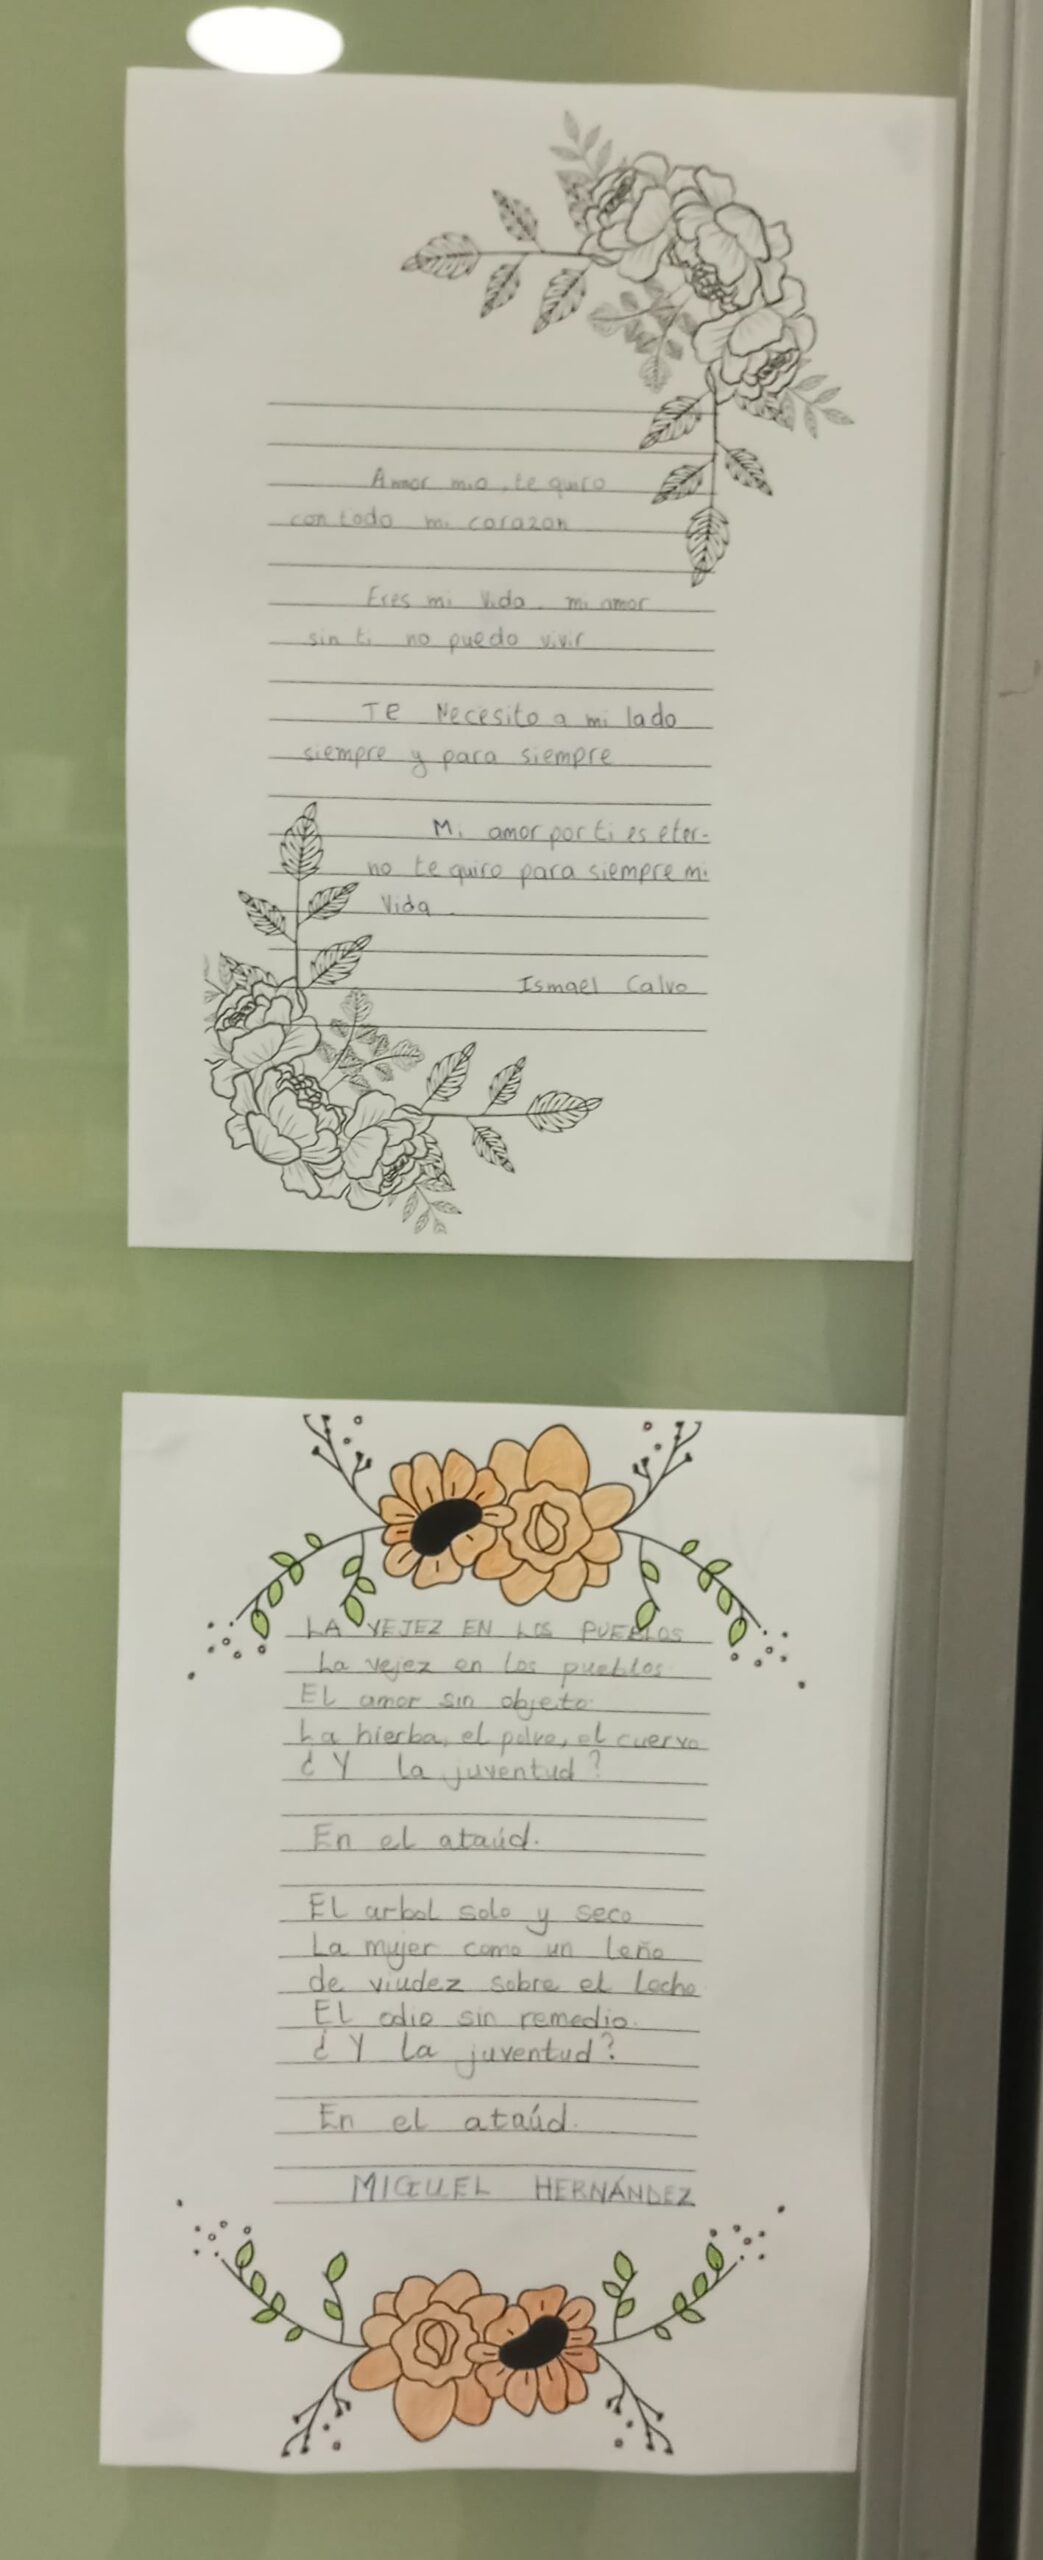 Amor mio, te quiro
con todo mi corazon
Eres mi vida. mi amor
sin ti no puedo vivir
TE Necesito a mi lado
siempre y para siempre
Mi amor por ti es eter-
no te quiro para siempre mi
Vida.
Ismael Calvo
LA VEJEZ EN LOS PUEBLOS
La vejez en los pueblos
El amor sin objeto.
La hierba, el polvo, el cuervo
¿Y la juventud?
En el ataúd.
El arbol solo y seco
La mujer como un leño
de viudez sobre el Lecho.
El odio sin remedio.
¿Y la juventud?
En el ataúd.
MIGUEL HERNÁNDEZ